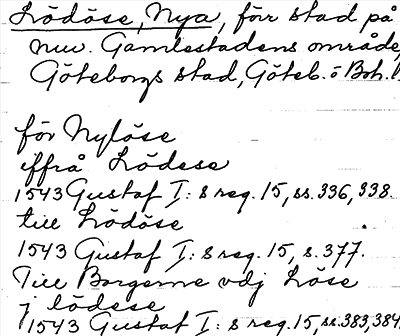 Lödöse, Nya, förr stad på
nuv. Gamlestadens område,
Göteborgs stad, Göteb. o Boh. l.
för Nylöse
iffrå Lödese
1543 Gustaf I:s reg. 15, ss. 336, 338.
till Lödöse
1543 Gustaf I:s reg. 15, s. 377.
Till Borgerne vdj Löse
j lödese
1543 Gustaf I:s reg. 15, ss. 383, 384